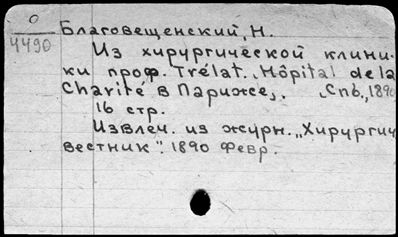 О
4490
Благовещенский, Н.
Из хирургической клини-
ки проф. Trélat. „Hôpital de la
Charité в Париже„. Спб., 1890
16 стр.
Извлеч. из журн. „Хирургич
вестник". 1890 Февр.